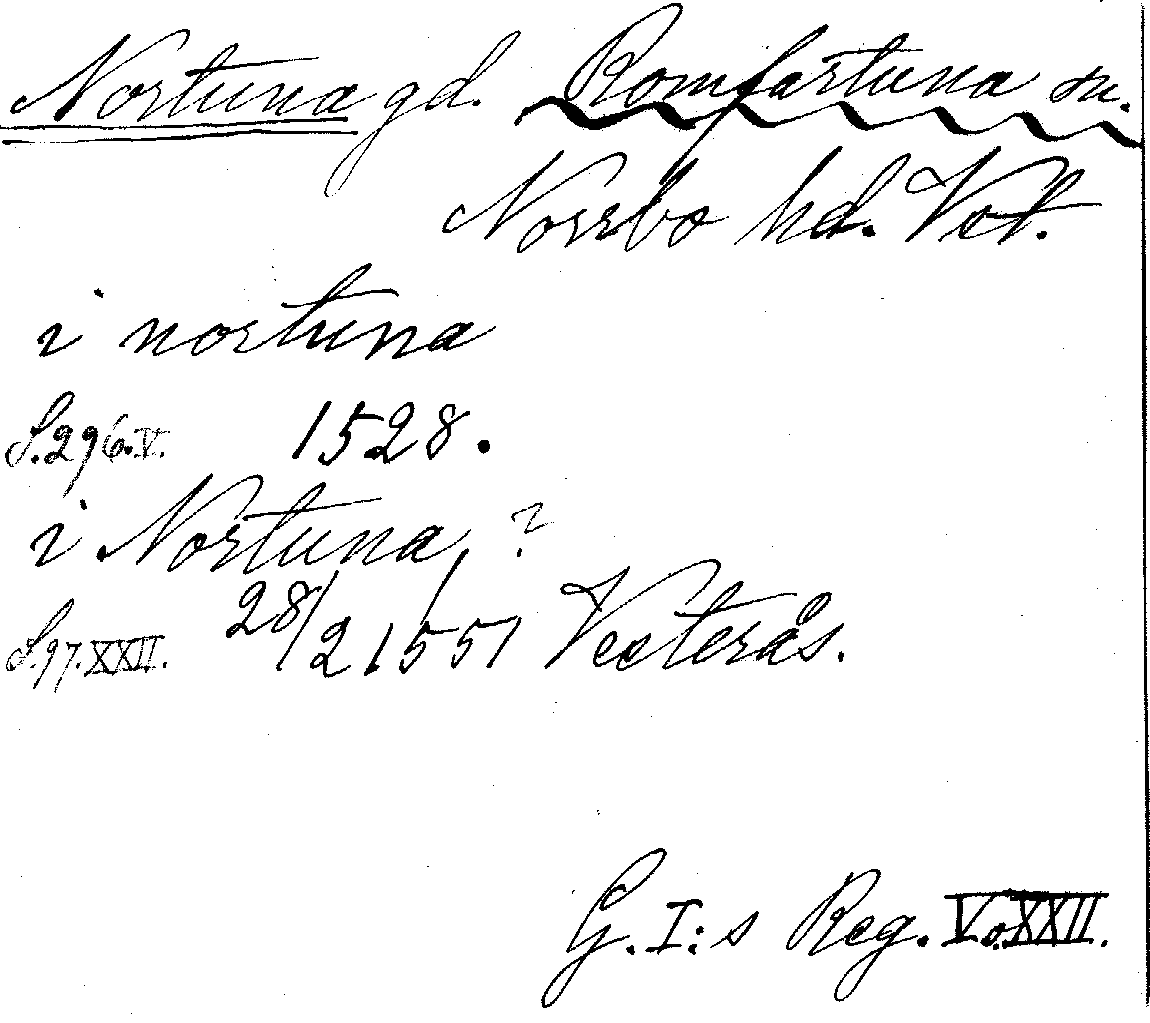 Nortuna gd. Romfartuna sn.
Norrbo hd. Vstl.
i nortuna
S. 296. V. 1528.
i Nortuna, ?
S. 97. XXII. 28/2 1551 Vesterås.
G. I:s Reg. V o. XXII.